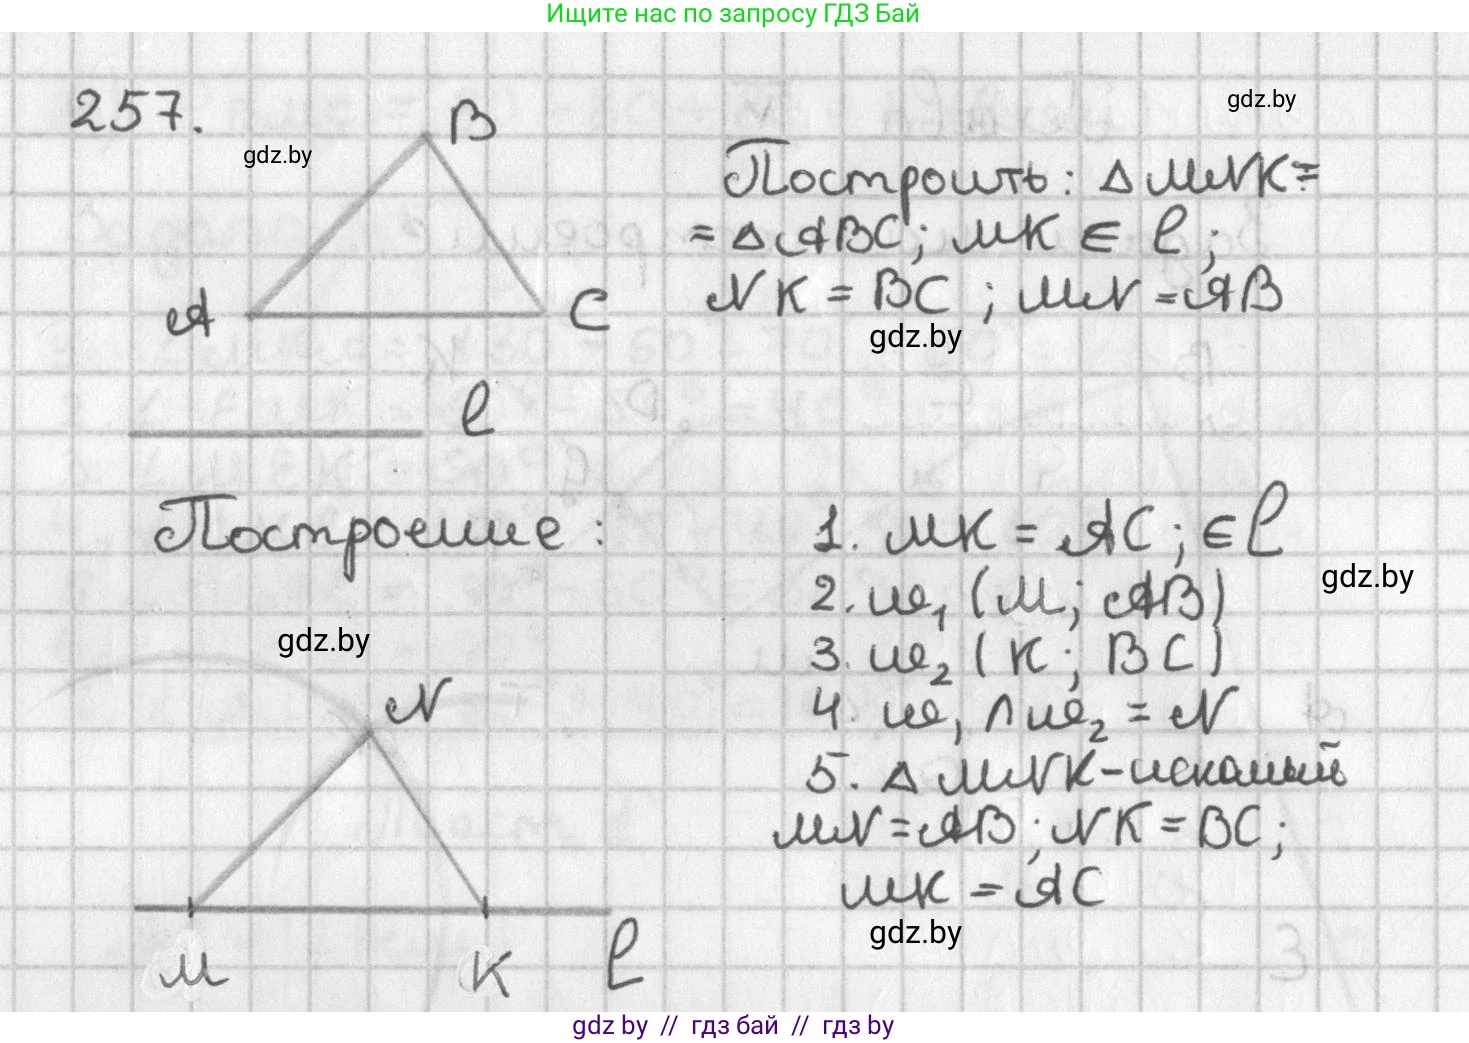 Ищите нас по запросу ГДЗ Бай
257.
B
gdz.by
gdz.by
A
C
Построить: △ MNK =
= △ ABC; MK ∈ l;
NK = BC ; MN = AB
gdz.by
l
Построение :
1. MK = AC; ∈ l
gdz.by
2. ω₁ (M; AB)
3. ω₂ (K; BC)
4. ω₁ ∩ ω₂ = N
5. △ MNK - искомый
MN = AB; NK = BC;
MK = AC
gdz.by
gdz.by
N
M
K
l
gdz by // гдз бай // гдз by